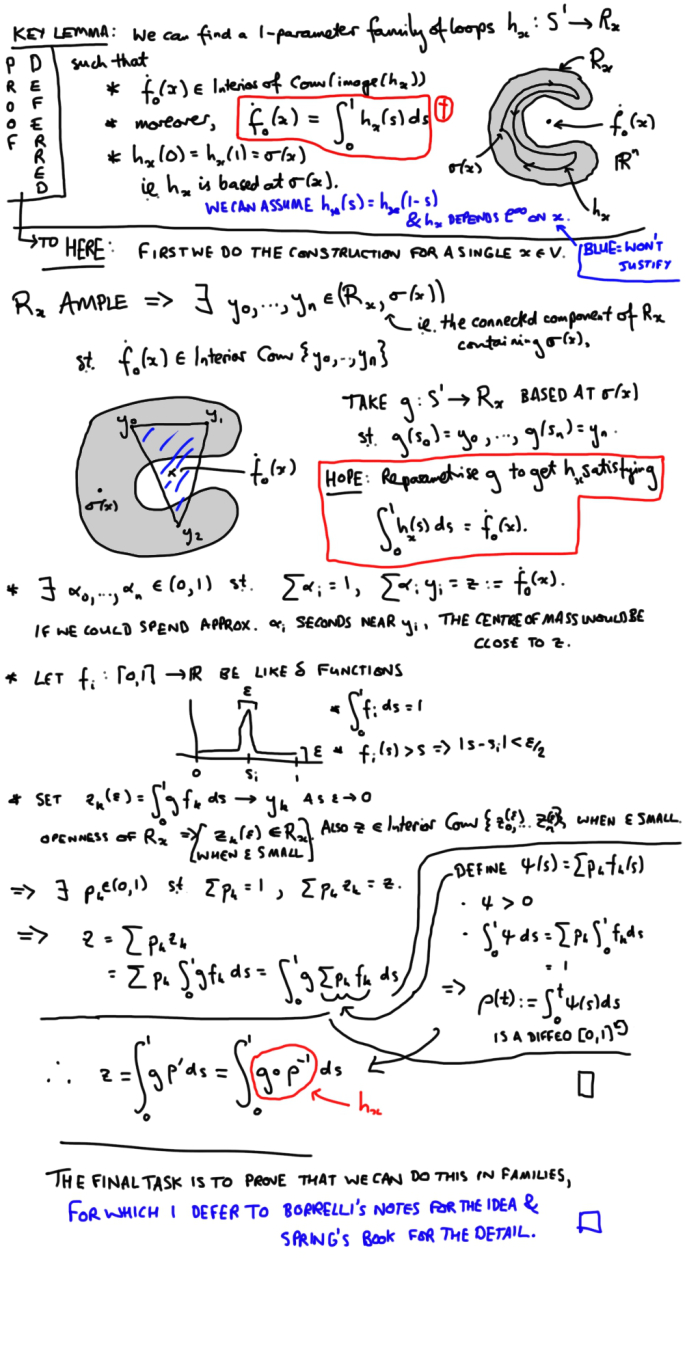 KEY LEMMA: We can find a 1-parameter family of loops hₓ : S¹ → Rₓ
PROOF DEFERRED
such that
* ḟ₀(x) ∈ Interior of Conv(image(hₓ))
* moreover, ḟ₀(x) = ∫₀¹ hₓ(s) ds (†)
* hₓ(0) = hₓ(1) = σ(x)
ie hₓ is based at σ(x).
WE CAN ASSUME hₓ(s) = hₓ(1-s)
& hₓ DEPENDS C^∞ ON x.
Rₓ
ḟ₀(x)
σ(x)
ℝⁿ
hₓ
BLUE = WON'T
JUSTIFY
TO HERE: FIRST WE DO THE CONSTRUCTION FOR A SINGLE x ∈ V.
Rₓ AMPLE => ∃ y₀, ..., yₙ ∈ (Rₓ, σ(x))
ie. the connected component of Rₓ
containing σ(x).
st. ḟ₀(x) ∈ Interior Conv {y₀, .., yₙ}
y₀
y₁
ḟ₀(x)
σ(x)
y₂
TAKE g : S¹ → Rₓ BASED AT σ(x)
st. g(s₀) = y₀, ..., g(sₙ) = yₙ.
HOPE: Reparametrise g to get hₓ satisfying
∫₀¹ hₓ(s) ds = ḟ₀(x).
* ∃ α₀, ..., αₙ ∈ (0,1) st. Σαᵢ = 1, Σαᵢyᵢ = z := ḟ₀(x).
IF WE COULD SPEND APPROX. αᵢ SECONDS NEAR yᵢ, THE CENTRE OF MASS WOULD BE
CLOSE TO z.
* LET fᵢ : [0,1] → ℝ BE LIKE δ FUNCTIONS
ε
0
sᵢ
1
ε
* ∫₀¹ fᵢ ds = 1
* fᵢ(s) > s => |s-sᵢ| < ε/2
* SET zₖ(ε) = ∫₀¹ g fₖ ds → yₖ AS ε → 0
OPENNESS OF Rₓ => [zₖ(ε) ∈ Rₓ WHEN ε SMALL]. Also z ∈ Interior Conv {z₀(ε), ... zₙ(ε)}, WHEN ε SMALL.
=> ∃ pₖ ∈ (0,1) st Σpₖ = 1, Σpₖzₖ = z.
=> z = Σpₖzₖ
= Σpₖ ∫₀¹ g fₖ ds = ∫₀¹ g Σpₖfₖ ds
DEFINE ψ(s) = Σpₖfₖ(s)
· ψ > 0
· ∫₀¹ ψ ds = Σpₖ ∫₀¹ fₖ ds
= 1
=> ρ(t) := ∫₀ᵗ ψ(s) ds
IS A DIFFEO [0,1]↺
∴ z = ∫₀¹ g ρ' ds = ∫₀¹ g∘ρ⁻¹ ds
hₓ
THE FINAL TASK IS TO PROVE THAT WE CAN DO THIS IN FAMILIES,
FOR WHICH I DEFER TO BORRELLI'S NOTES FOR THE IDEA &
SPRING'S BOOK FOR THE DETAIL.